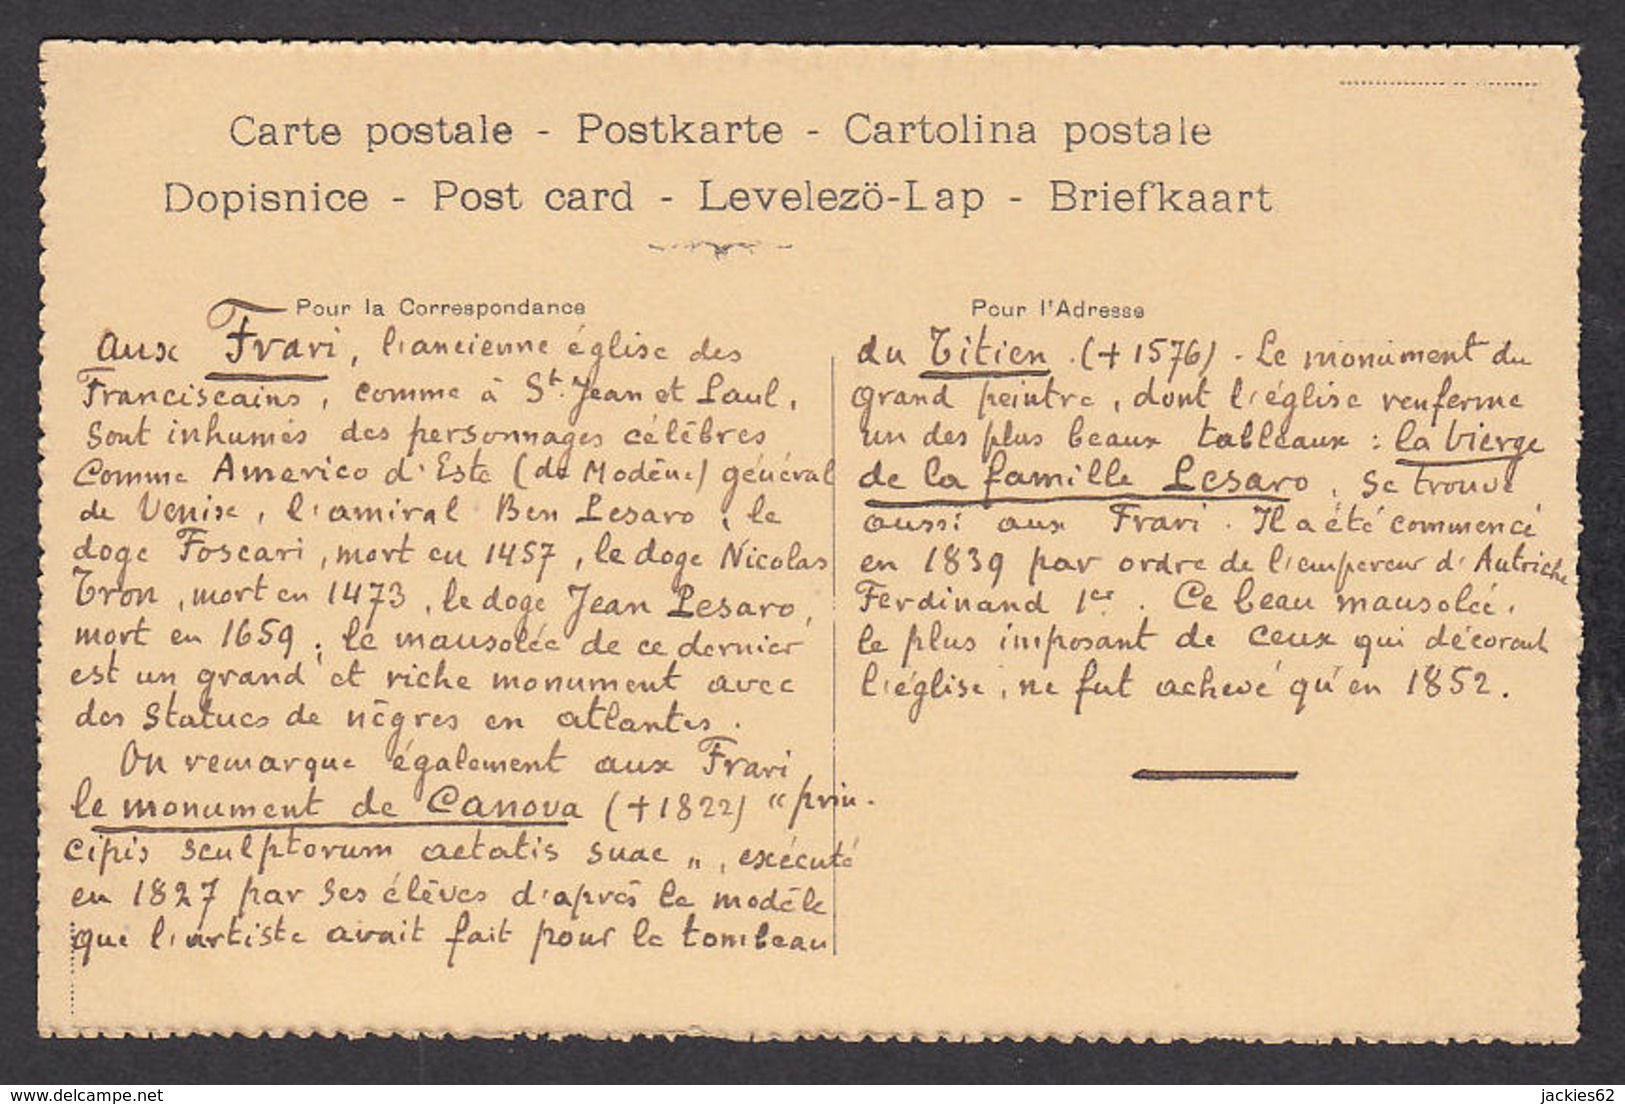 Carte postale - Postkarte - Cartolina postale
Dopisnice - Post card - Levelezö-Lap - Briefkaart
Pour la Correspondance
aux Frari, l'ancienne église des
Franciscains, comme à St. Jean et Paul,
sont inhumés des personnages célèbres
comme Americo d'Este (de Modène) général
de Venise, l'amiral Ben Pesaro, le
doge Foscari, mort en 1457, le doge Nicolas
Tron, mort en 1473, le doge Jean Pesaro,
mort en 1659; le mausolée de ce dernier
est un grand et riche monument avec
des statues de nègres en atlantes.
On remarque également aux Frari,
le monument de Canova (+1822) "prin-
cipis sculptorum aetatis suae", exécuté
en 1827 par ses élèves d'après le modèle
que l'artiste avait fait pour le tombeau
Pour l'Adresse
du Titien. (+1576). Le monument du
grand peintre, dont l'église renferme
un des plus beaux tableaux : la Vierge
de la famille Pesaro, se trouve
aussi aux Frari. Il a été commencé
en 1839 par ordre de l'empereur d'Autriche
Ferdinand 1er. Ce beau mausolée,
le plus imposant de ceux qui décorent
l'église, ne fut achevé qu'en 1852.
delcampe.net
jackies62